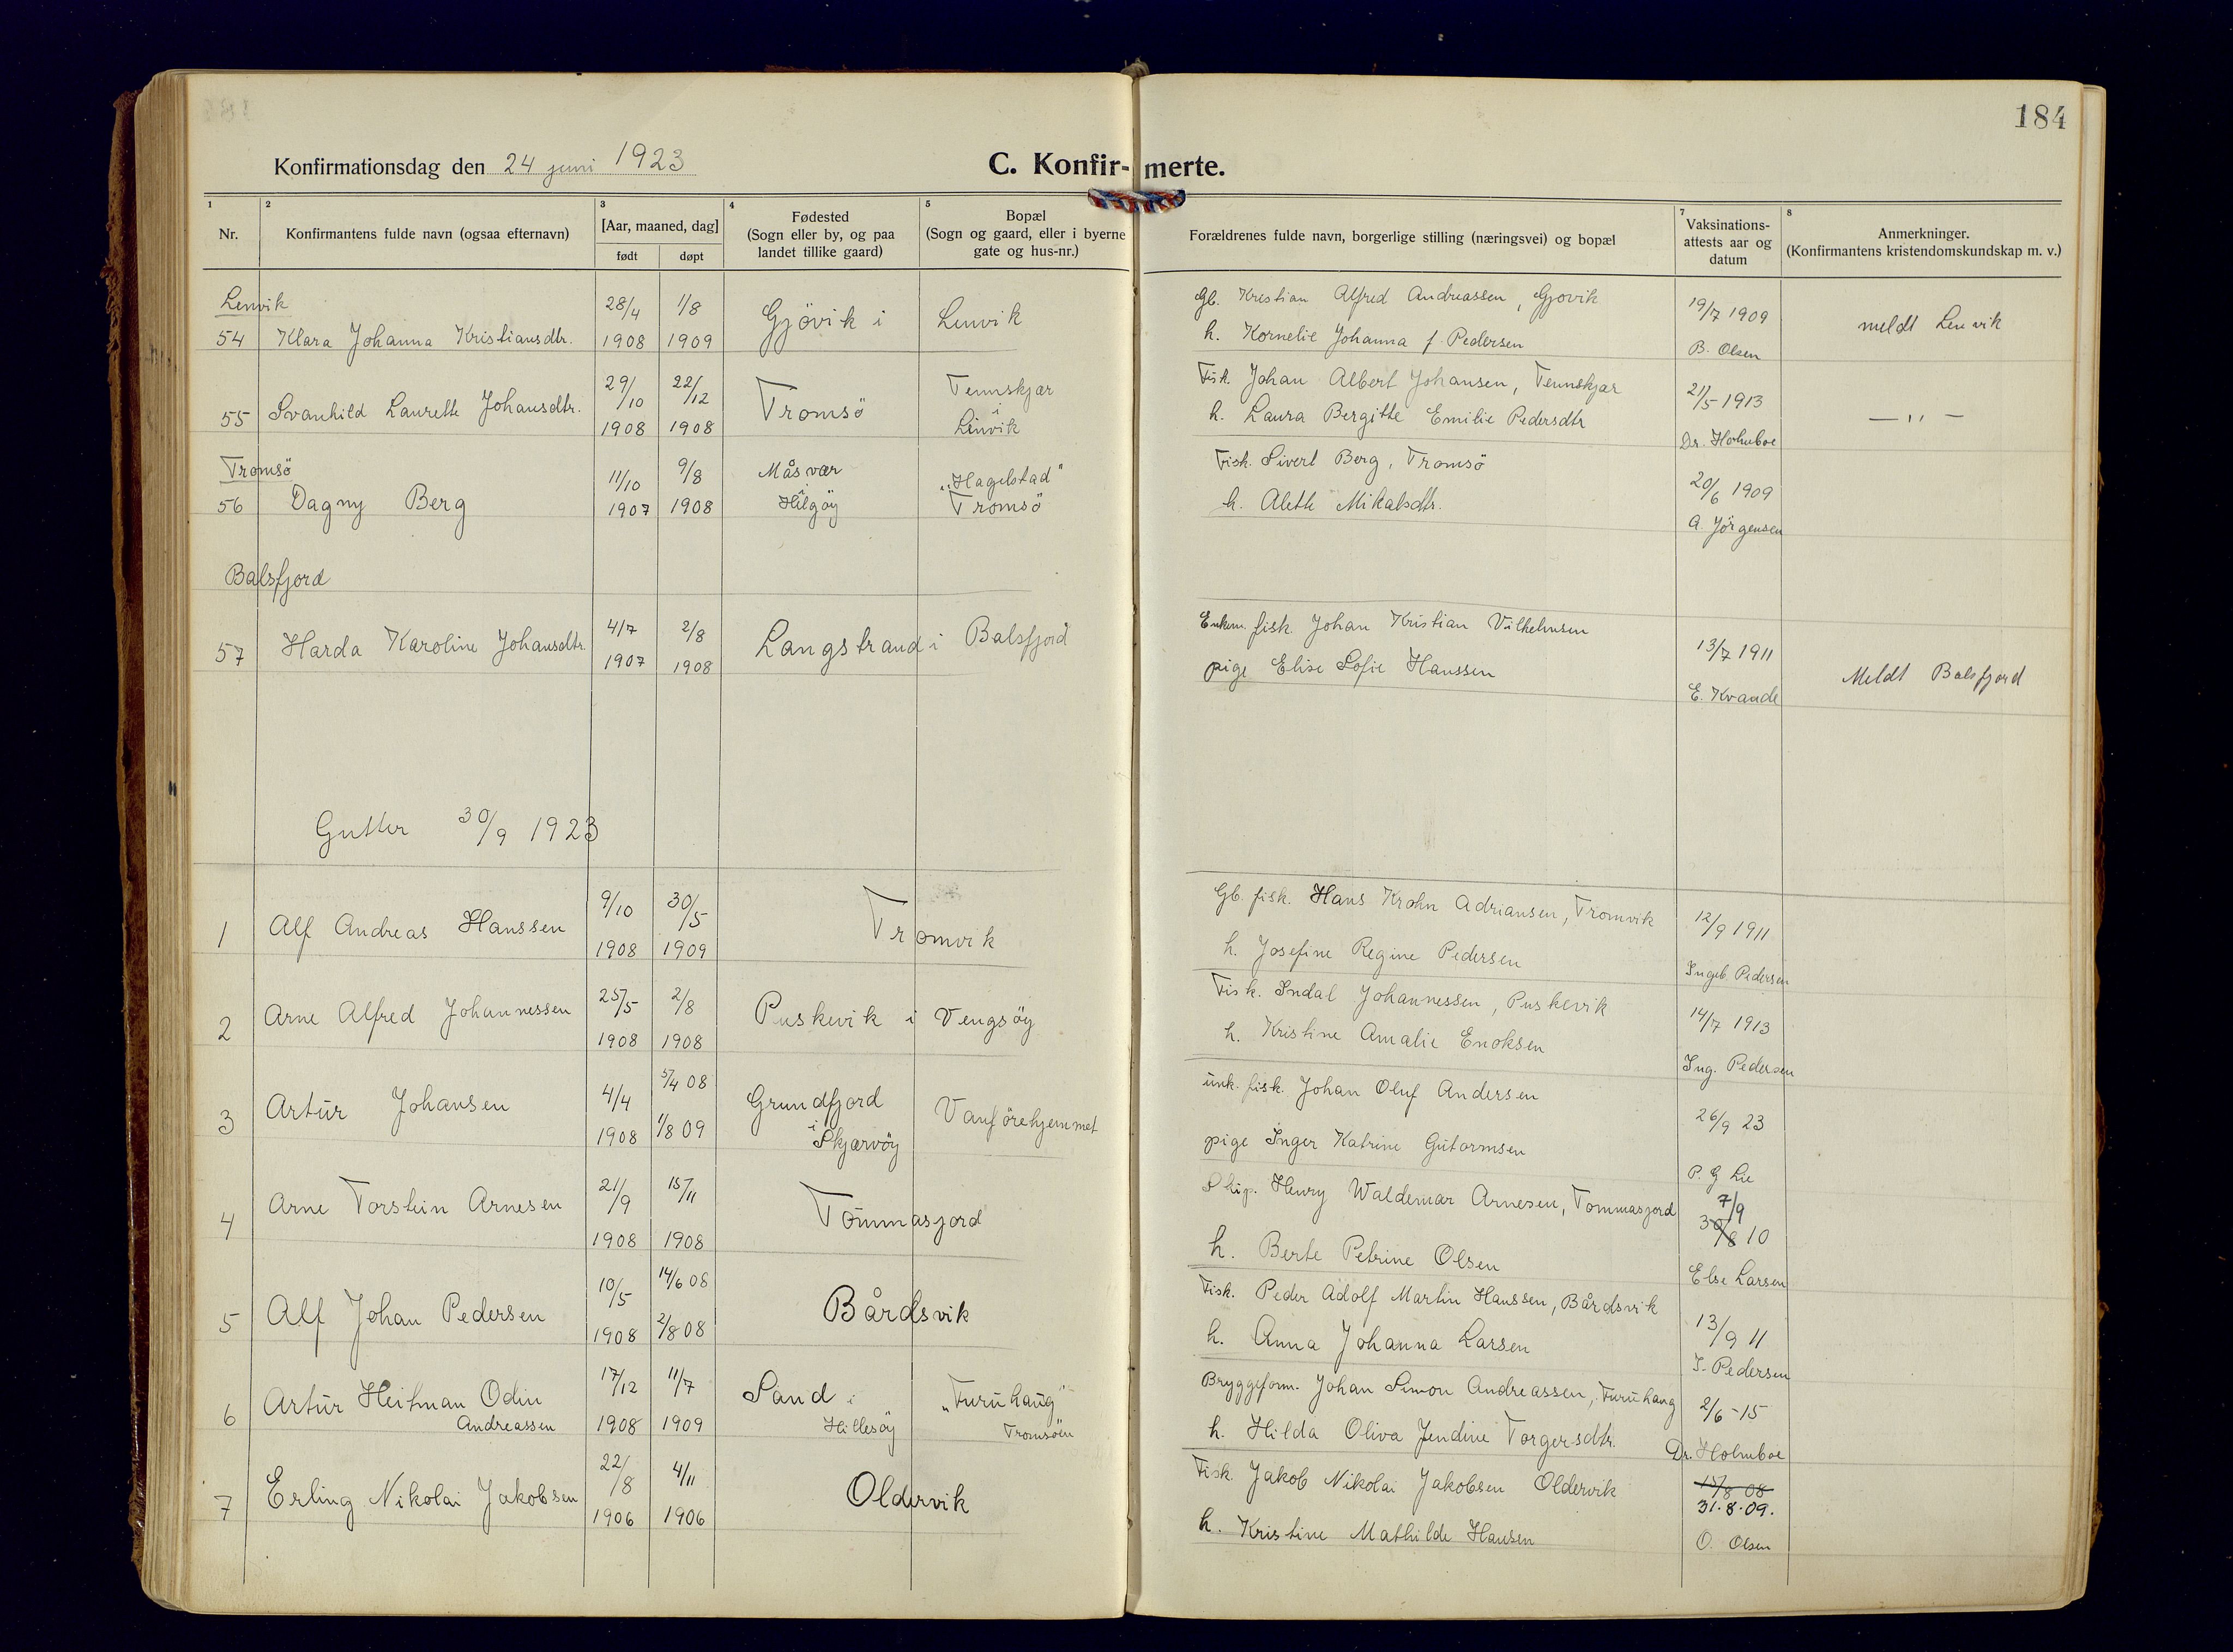 184
Konfirmationsdag den 24 juni 1923
C. Konfir-merte.
1 2 3 4 5 7 8
Nr.
Konfirmantens fulde navn (ogsaa efternavn)
[Aar, maaned, dag]
født døpt
Fødested
(Sogn eller by, og paa
landet tillike gaard)
Bopæl
(Sogn og gaard, eller i byerne
gate og hus-nr.)
Forældrenes fulde navn, borgerlige stilling (næringsvei) og bopæl
Vaksinations-
attests aar og
datum
Anmerkninger.
(Konfirmantens kristendomskundskap m. v.)
Lenvik
54 Klara Johanna Kristiansdtr. 28/4 1908 1/8 1909 Gjövik i Lenvik
Gb. Kristian Alfred Andreassen, Gjovik
h. Kornelie Johanna f. Pedersen
19/7 1909
B. Olsen
meldt Lenvik
55 Svanhild Laurette Johansdtr. 29/10 1908 22/12 1908 Tromsö Tennskjær i Lenvik
Fisk. Johan Albert Johansen, Tennskjær
h. Laura Bergitte Emilie Pedersdtr
21/5 1913
Dr. Holmboe
— " —
Tromsö
56 Dagny Berg 11/10 1907 9/8 1908 Måsvær i Helgöy "Hagelstad" Tromsö
Fisk. Sivert Berg, Tromsö
h. Alette Mikalsdtr.
20/6 1909
A. Jörgensen
Balsfjord
57 Harda Karoline Johansdtr. 4/7 1907 2/8 1908 Langstrand i Balsfjord
Enkem. fisk. Johan Kristian Vilhelmsen
pige Elise Sofie Hanssen
13/7 1911
E. Kvande
Meldt Balsfjord
Gutter 30/9 1923
1 Alf Andreas Hanssen 9/10 1908 30/5 1909 Tromvik
Gb. fisk. Hans Krohn Adriansen, Tromvik
h. Josefine Regine Pedersen
12/9 1911
Ingeb. Pedersen
2 Arne Alfred Johannessen 25/5 1908 2/8 1908 Puskevik i Vengsöy
Fisk. Indal Johannessen, Puskevik
h. Kristine Amalie Enoksen
14/7 1913
Ing. Pedersen
3 Artur Johansen 4/4 1908 5/4 08 1/8 09 Grundfjord i Skjærvöy Vanförehjemmet
unk. fisk. Johan Oluf Andersen
pige Inger Katrine Gutormsen
26/9 23
P. G Lie
4 Arne Torstein Arnesen 21/9 1908 15/11 1908 Tommasjord
Skip. Henry Waldemar Arnesen, Tommasjord
h. Berte Petrine Olsen
7/9
30/8 10
Else Larsen
5 Alf Johan Pedersen 10/5 1908 14/6 08 2/8 08 Bårdsvik
Fisk. Peder Adolf Martin Hanssen, Bårdsvik
h. Anna Johanna Larsen
13/9 11
I. Pedersen
6 Artur Heitman Odin Andreassen 17/12 1908 11/7 1909 Sand i Hillesöy "Furuhaug" Tromsöen
Bryggeform. Johan Simon Andreassen, Furuhaug
h. Hilda Oliva Jendine Torgersdtr.
2/6 -15
Dr. Holmboe
7 Erling Nikolai Jakobsen 22/8 1906 4/11 1906 Oldervik
Fisk. Jakob Nikolai Jakobsen Oldervik
h. Kristine Mathilde Hansen
15/8 08
31.8.09.
O. Olsen